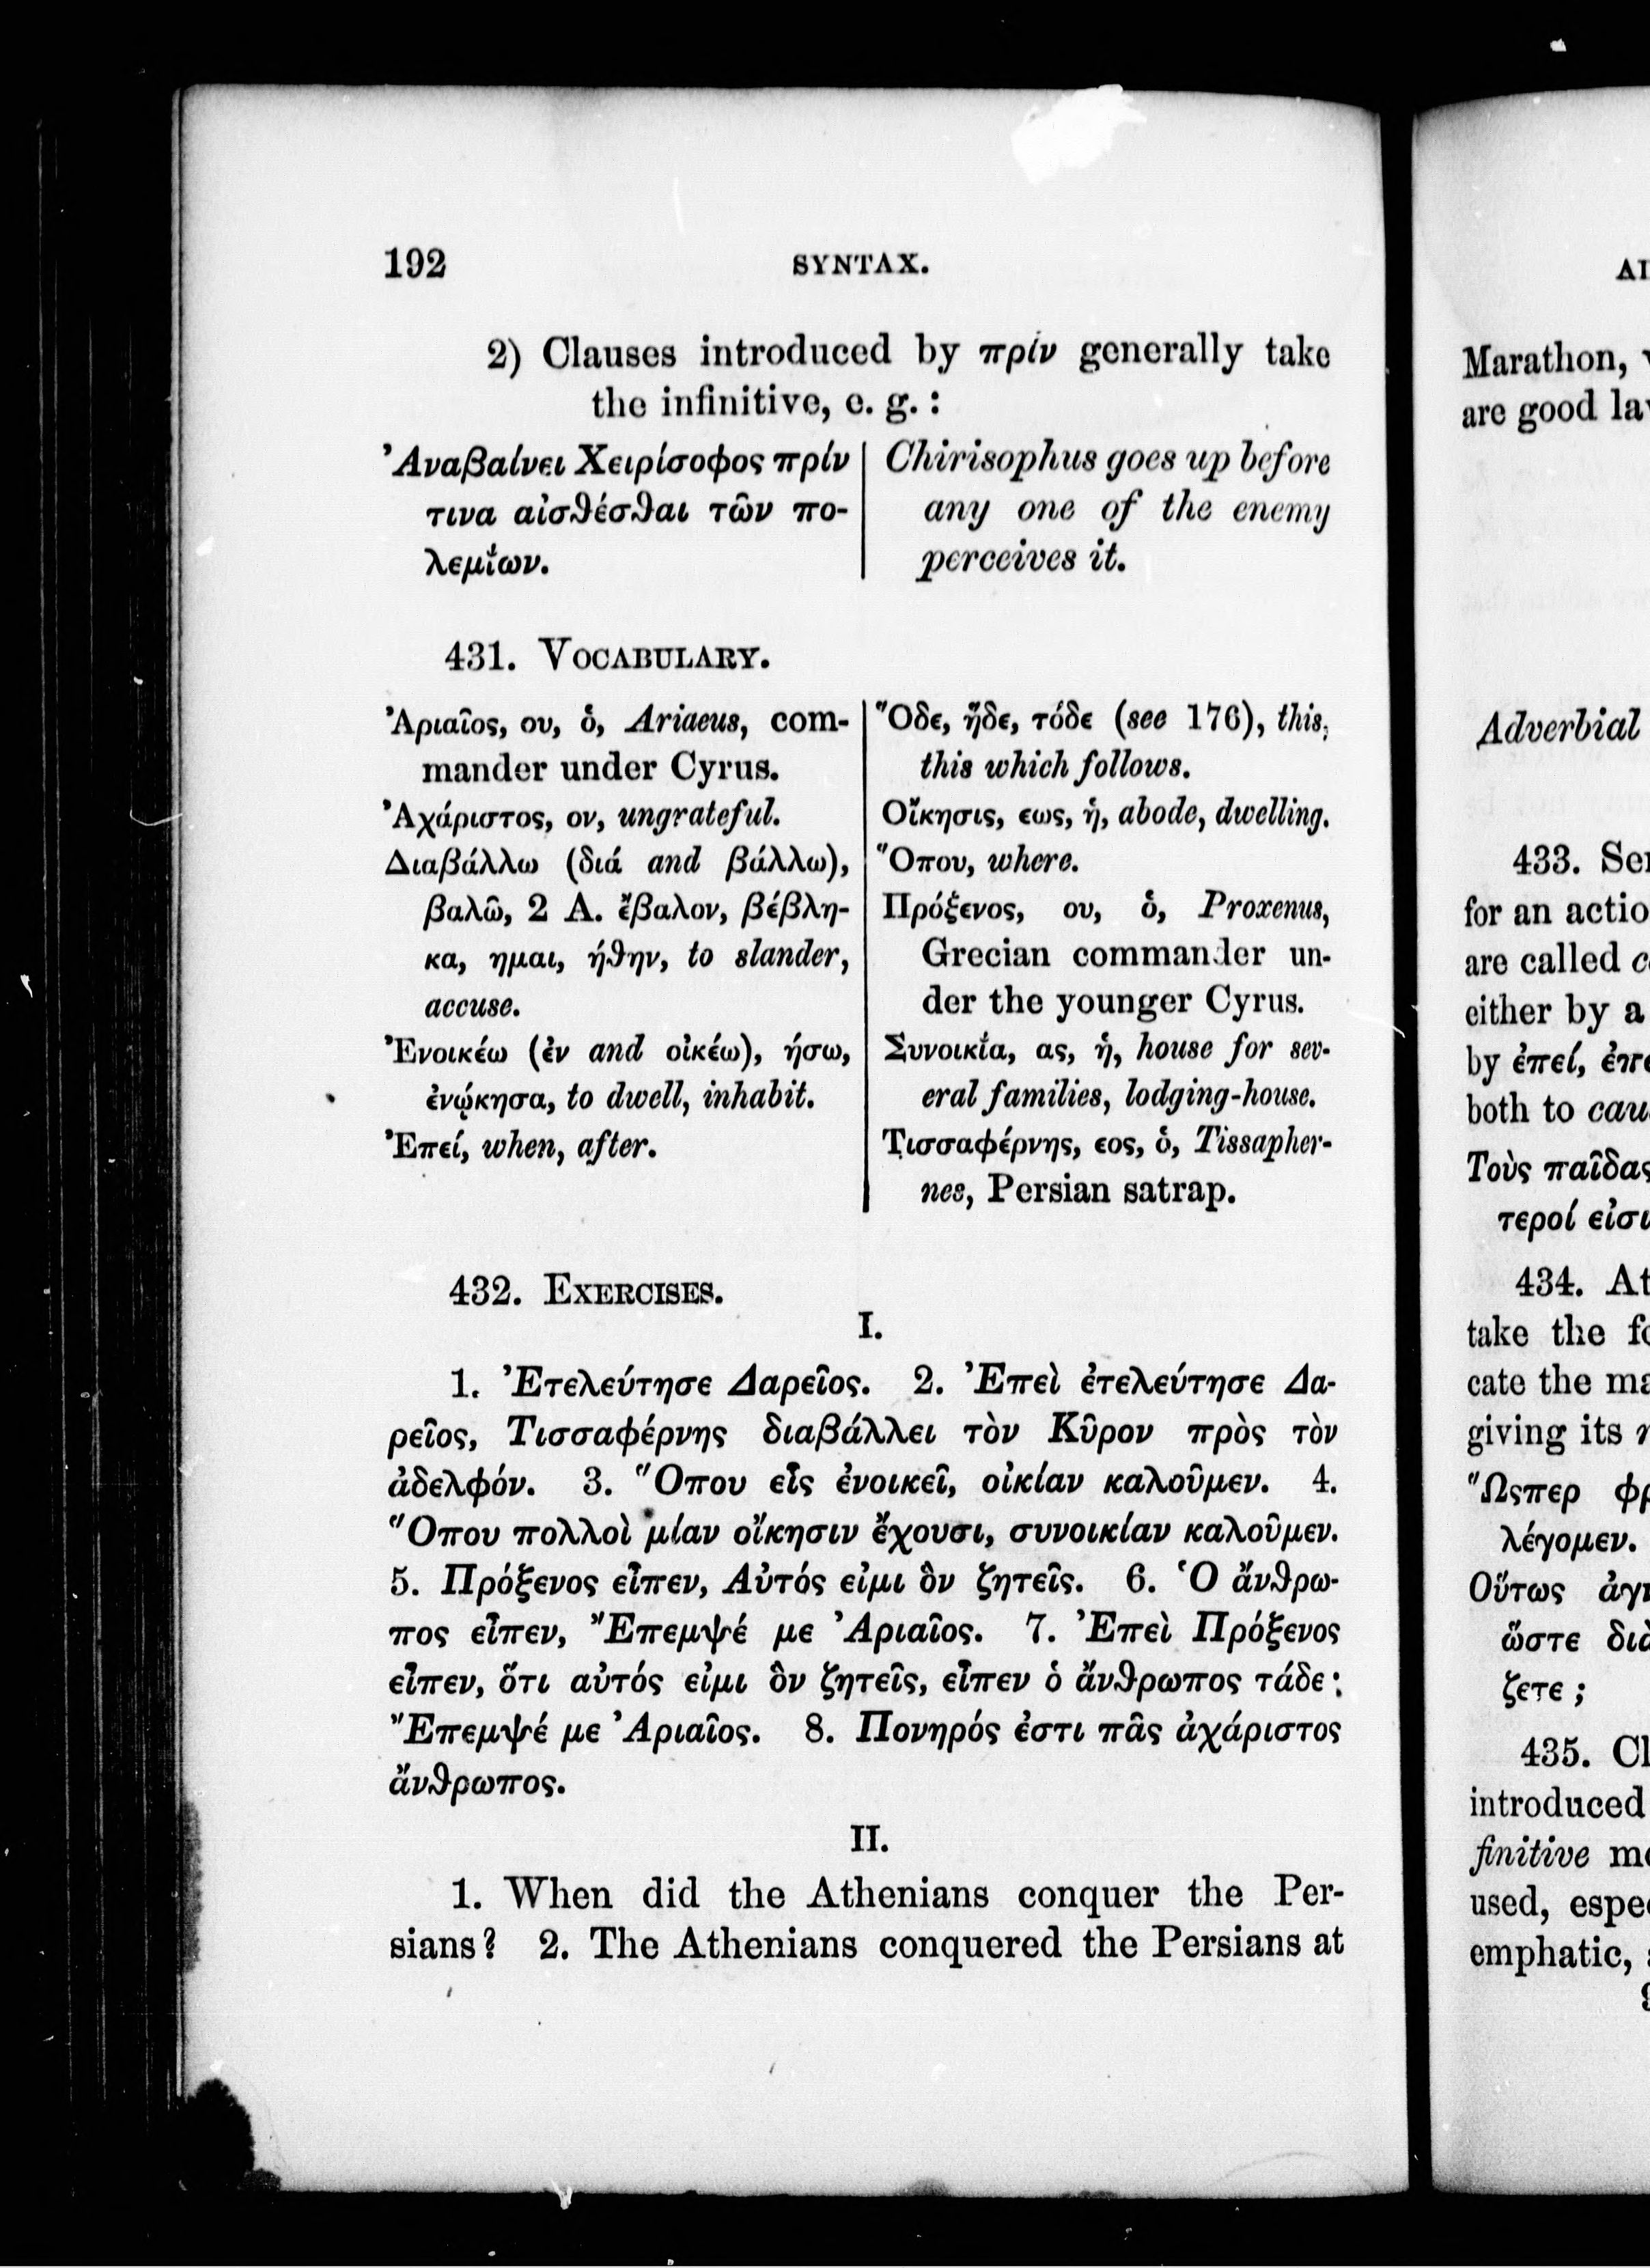 192 SYNTAX.
2) Clauses introduced by πρίν generally take
the infinitive, e. g. :
Ἀναβαίνει Χειρίσοφος πρίν
τινα αἰσϑέσϑαι τῶν πο-
λεμίων.
Chirisophus goes up before
any one of the enemy
perceives it.
431. VOCABULARY.
Ἀριαῖος, ου, ὁ, Ariaeus, com-
mander under Cyrus.
Ἀχάριστος, ον, ungrateful.
Διαβάλλω (διά and βάλλω),
βαλῶ, 2 A. ἔβαλον, βέβλη-
κα, ημαι, ήϑην, to slander,
accuse.
Ἐνοικέω (ἐν and οἰκέω), ήσω,
ἐνῴκησα, to dwell, inhabit.
Ἐπεί, when, after.
Ὅδε, ἥδε, τόδε (see 176), this,
this which follows.
Οἴκησις, εως, ἡ, abode, dwelling.
Ὅπου, where.
Πρόξενος, ου, ὁ, Proxenus,
Grecian commander un-
der the younger Cyrus.
Συνοικία, ας, ἡ, house for sev-
eral families, lodging-house.
Τισσαφέρνης, εος, ὁ, Tissapher-
nes, Persian satrap.
432. EXERCISES.
I.
1. Ἐτελεύτησε Δαρεῖος. 2. Ἐπεὶ ἐτελεύτησε Δα-
ρεῖος, Τισσαφέρνης διαβάλλει τὸν Κῦρον πρὸς τὸν
ἀδελφόν. 3. Ὅπου εἷς ἐνοικεῖ, οἰκίαν καλοῦμεν. 4.
Ὅπου πολλοὶ μίαν οἴκησιν ἔχουσι, συνοικίαν καλοῦμεν.
5. Πρόξενος εἶπεν, Αὐτός εἰμι ὃν ζητεῖς. 6. Ὁ ἄνϑρω-
πος εἶπεν, Ἔπεμψέ με Ἀριαῖος. 7. Ἐπεὶ Πρόξενος
εἶπεν, ὅτι αὐτός εἰμι ὃν ζητεῖς, εἶπεν ὁ ἄνϑρωπος τάδε:
Ἔπεμψέ με Ἀριαῖος. 8. Πονηρός ἐστι πᾶς ἀχάριστος
ἄνϑρωπος.
II.
1. When did the Athenians conquer the Per-
sians? 2. The Athenians conquered the Persians at
Marathon,
are good
Adverbial
433.
for an
are called
either by a
by ἐπεί,
both to
Τοὺς παῖδας
τεροί
434.
take the
cate the
giving its
Ὥςπερ
λέγομεν.
Οὕτως
ὥστε
ζετε ;
435.
introduced
finitive
used,
emphatic,